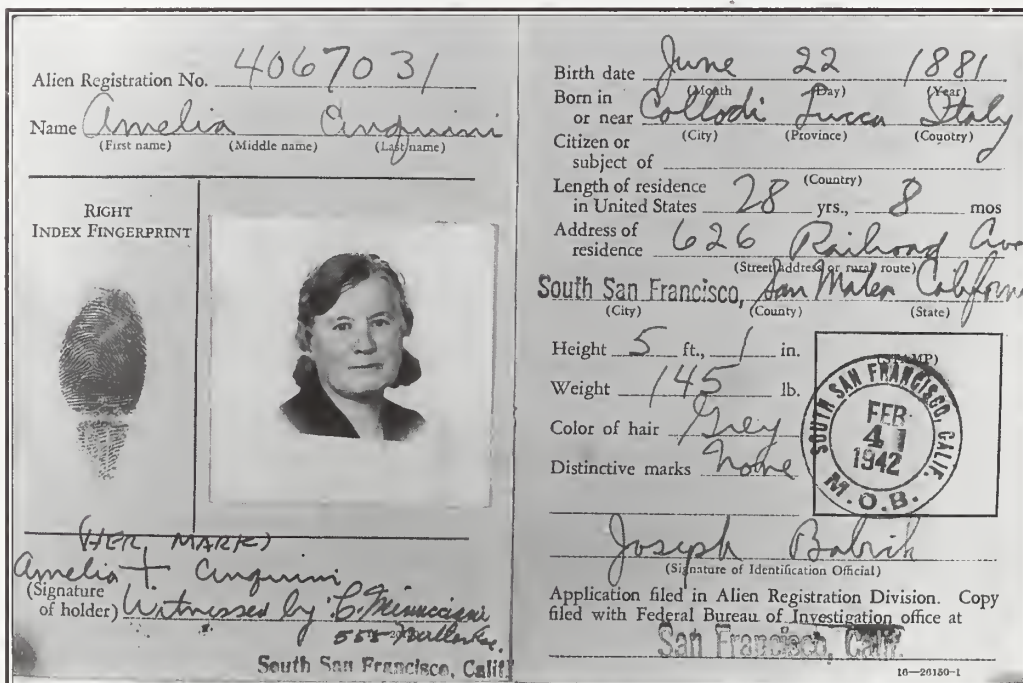 Alien Registration No. 4067031
Name Amelia Cinquini
(First name) (Middle name) (Last name)
RIGHT
INDEX FINGERPRINT
(HER MARK)
Amelia + Cinquini
(Signature
of holder) Witnessed by
555
South San Francisco, Calif.
Birth date June 22 1881
(Month (Day) (Year)
Born in
or near Collodi Lucca Italy
(City) (Province) (Country)
Citizen or
subject of
(Country)
Length of residence
in United States 28 yrs., 8 mos
Address of
residence 626 Railroad Ave
(Street address or rural route)
South San Francisco, San Mateo California
(City) (County) (State)
Height 5 ft., 1 in.
Weight 145 lb.
Color of hair Grey
Distinctive marks None
(STAMP)
SOUTH SAN FRANCISCO, CALIF.
FEB
4
1942
M.O.B.
Joseph
(Signature of Identification Official)
Application filed in Alien Registration Division. Copy
filed with Federal Bureau of Investigation office at
San Francisco, Calif.
16—26150-1